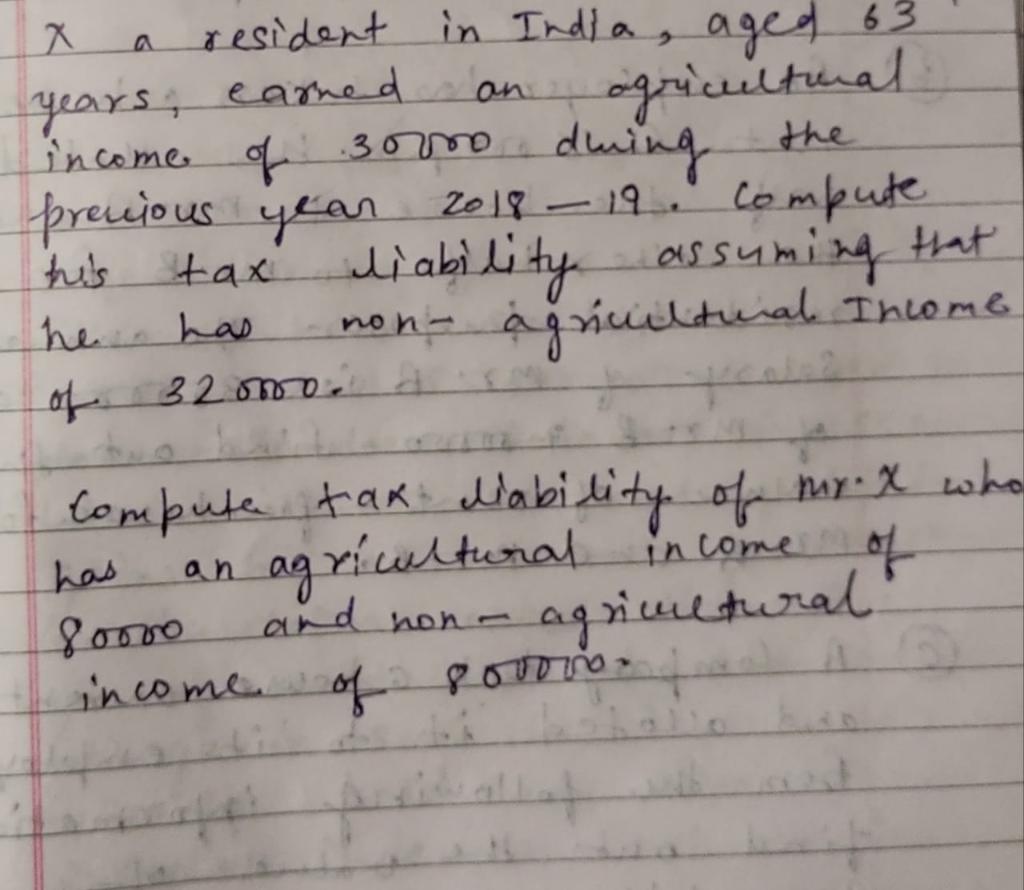 X a resident in India, aged 63
years, earned an agricultural
income of 30000 during the
previous year 2018-19. Compute
his tax liability assuming that
he has non-agricultural Income
of 320000.
Compute tax liability of mr. X who
has an agricultural income of
80000 and non-agricultural
income of 800000.